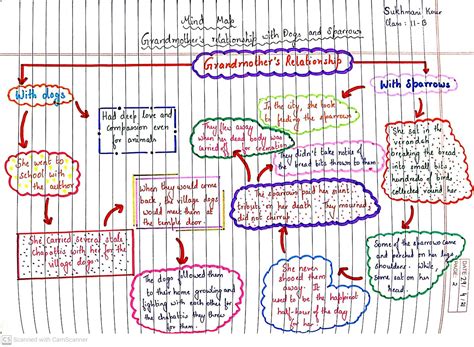 Mind Map
Grandmother's relationship with Dogs and Sparrows
Sukhmani Kour
Class : 11-B
Grandmother's Relationship
With dogs
Had deep love and
compassion even
for animals
She went to
school with
the author
She carried several stale
chapattis with her for the
village dogs
When they would come
back, the village dogs
would meet them at
the temple door
The dogs followed them
to their home growling and
fighting with each other for
the chapattis they threw
for them.
With Sparrows
She sat in the
verandah
breaking the bread
into small bits,
hundreds of birds
collected round her
Some of the sparrows came
and perched on her legs
shoulders. while
some sat on her
head.
She never
shooed them
away. It
used to be the happiest
half-hour of the day
for her.
The sparrows paid her silent
tribute on her death. They mourned,
did not chirrup
They didn't take notice of
bread bits thrown to them
They fley away
when her dead body was
carried off for cremation
In the city, she took
to feeding the sparrows
DATE
PAGE
CS Scanned with CamScanner